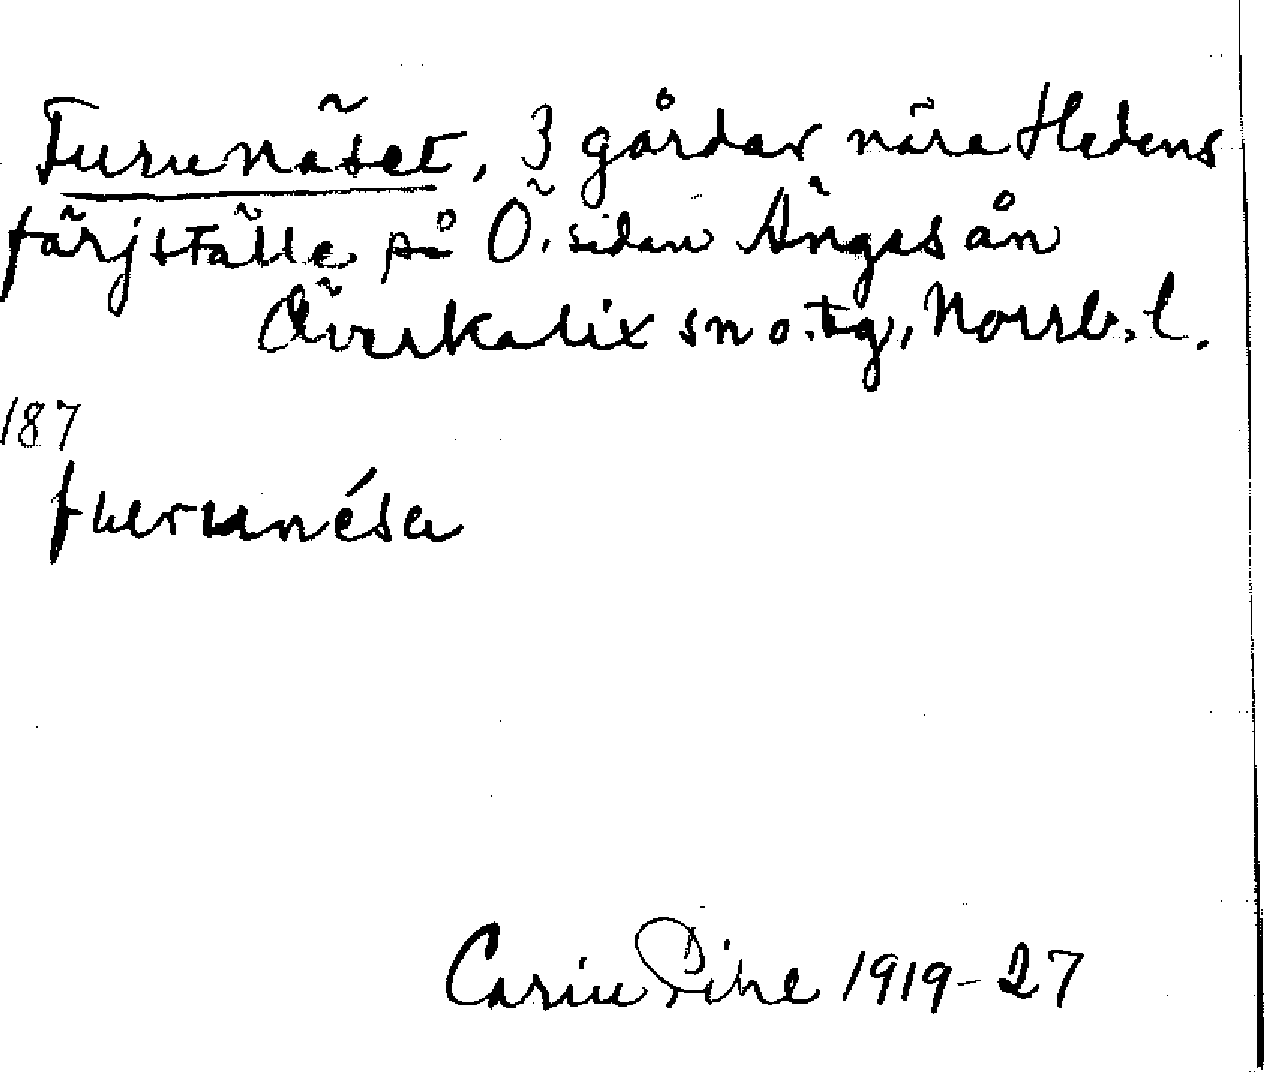 Furunäset, 3 gårdar nära Hedens
färjställe på Ö. sidan Ängesån
Överkalix sn o. tg, Norrb. l.
187
fuerunésa
Carin Pihl 1919-27